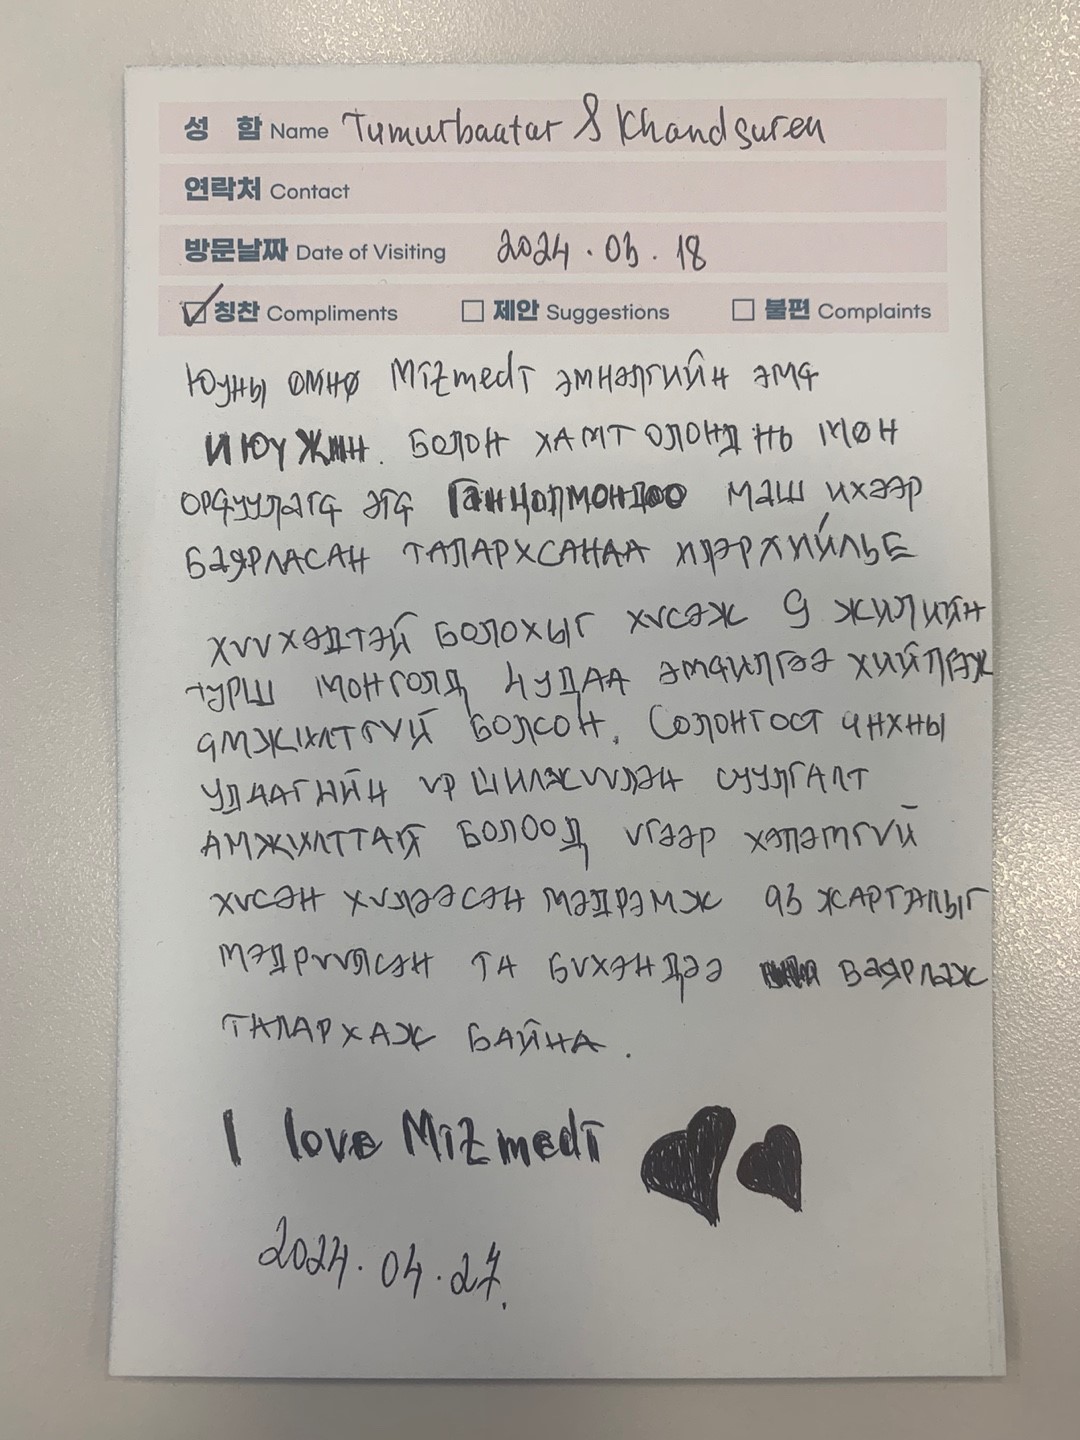 성 함 Name Tumurbaatar & Khandsuren
연락처 Contact
방문날짜 Date of Visiting 2024.03.18
칭찬 Compliments 제안 Suggestions 불편 Complaints
Юуны өмнө Mizmedi эмнэлгийн эмч
И Юү Жин. болон хамт олонд нь мөн
орчуулагч эгч Ганцолмондоо маш ихээр
баярласан талархсанаа илэрхийлье
хүүхэдтэй болохыг хүсэж 9 жилийн
турш монголд 4 удаа эмчилгээ хийлгэж
амжилтгүй болсон. Солонгост анхны
удаагийн үр шилжүүлэн суулгалт
амжилттай болоод үгээр хэлэмгүй
хүсэн хүлээсэн мэдрэмж аз жаргалыг
мэдрүүлсэн та бүхэндээ баярлаж
талархаж байна.
I love Mizmedi
2024.04.27.